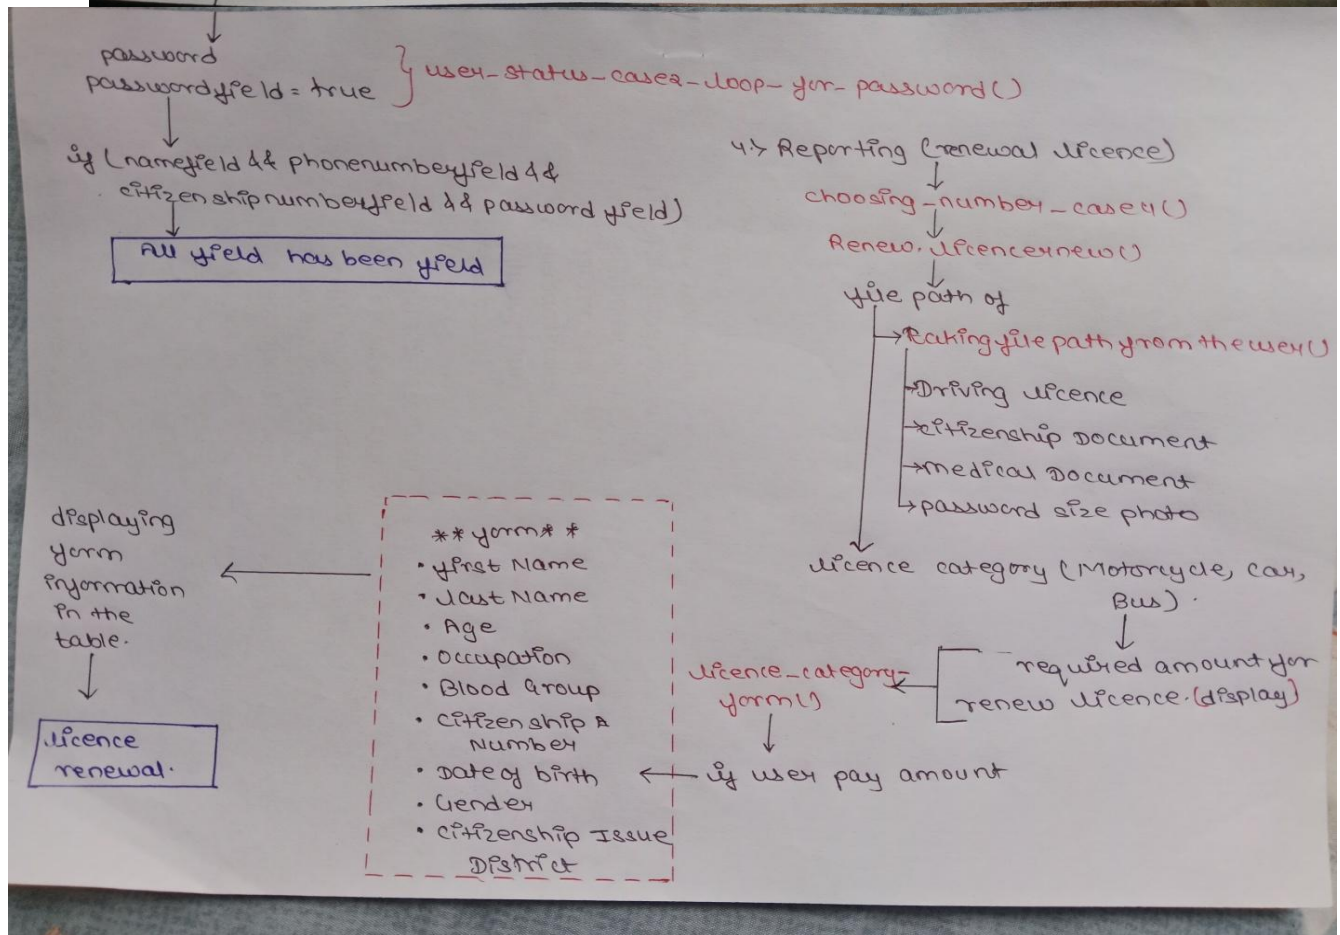 password
passwordfield = true
user_status_case2_loop_for_password()
if (namefield && phonenumberfield &&
citizenshipnumberfield && password field)
All field has been field
4> Reporting (renewal licence)
choosing_number_case4()
Renew.licencernew()
file path of
takingfilepathfromtheuser()
Driving licence
citizenship Document
medical Document
password size photo
licence category (Motorcycle, car,
Bus).
required amount for
renew licence.(display)
licence_category_
form()
if user pay amount
**form**
• first Name
• last Name
• Age
• Occupation
• Blood Group
• Citizenship
Number
• Date of birth
• Gender
• Citizenship Issue
District
displaying
form
information
in the
table.
licence
renewal.